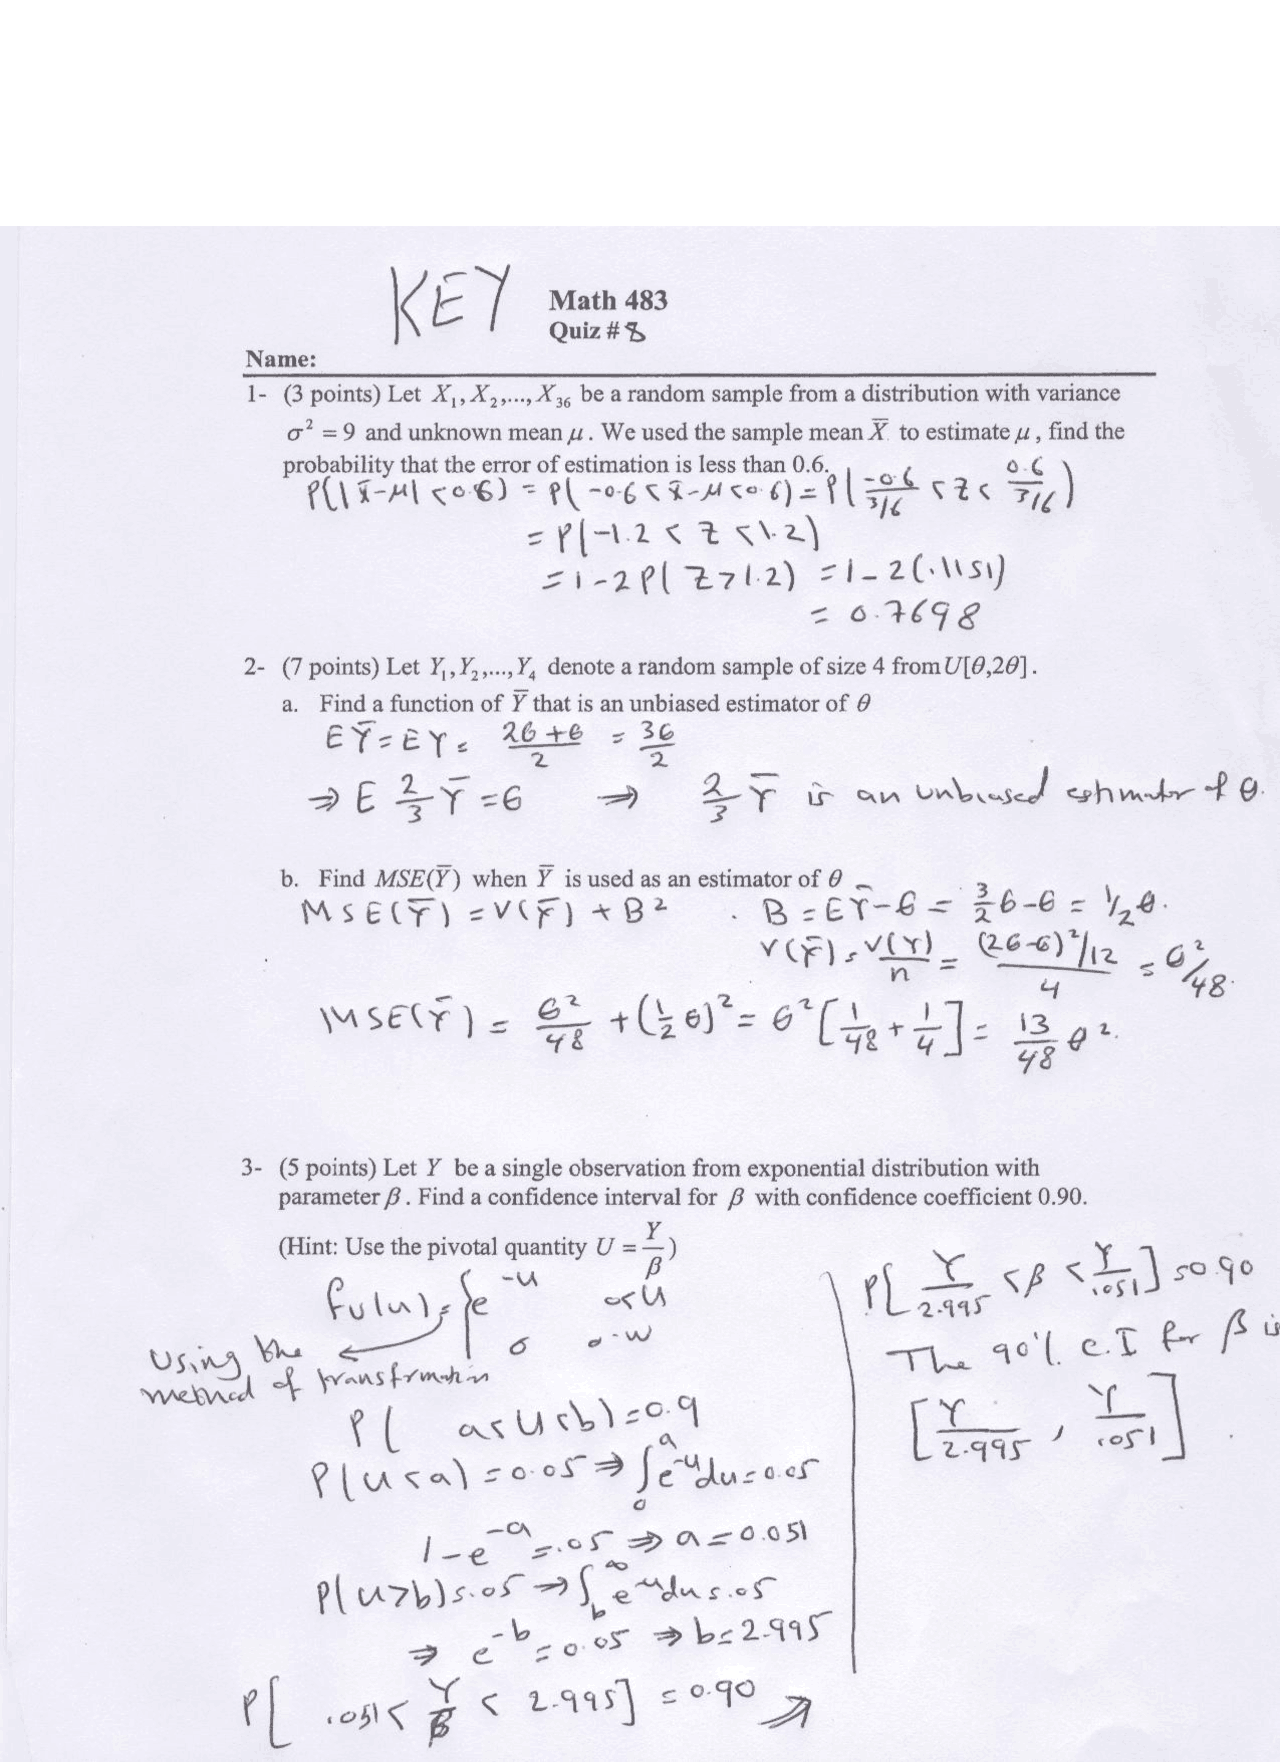 KEY
Math 483
Quiz # 8
Name:
1- (3 points) Let X₁, X₂,..., X₃₆ be a random sample from a distribution with variance
σ² = 9 and unknown mean μ. We used the sample mean X̅ to estimate μ, find the
probability that the error of estimation is less than 0.6.
P(|x̅-μ| < 0.6) = P(-0.6 < x̅-μ < 0.6) = P(-0.6/(3/6) < Z < 0.6/(3/6))
= P(-1.2 < Z < 1.2)
= 1-2P(Z>1.2) = 1-2(.1151)
= 0.7698
2- (7 points) Let Y₁, Y₂,..., Y₄ denote a random sample of size 4 from U[θ,2θ].
a. Find a function of Y̅ that is an unbiased estimator of θ
EY̅ = EY = (2θ+θ)/2 = 3θ/2
⇒ E 2/3 Y̅ = θ ⇒ 2/3 Y̅ is an unbiased estimator of θ.
b. Find MSE(Y̅) when Y̅ is used as an estimator of θ
MSE(Y̅) = V(Y̅) + B² . B = EY̅-θ = 3/2 θ-θ = 1/2 θ.
V(Y̅) = V(Y)/n = ((2θ-θ)²/12)/4 = θ²/48.
MSE(Y̅) = θ²/48 + (1/2 θ)² = θ²[1/48 + 1/4] = 13/48 θ².
3- (5 points) Let Y be a single observation from exponential distribution with
parameter β. Find a confidence interval for β with confidence coefficient 0.90.
(Hint: Use the pivotal quantity U = Y/β)
fU(u) = { e^-u 0<u
0 o.w
Using the
method of transformation
P( a<U<b) = 0.9
P(U<a) = 0.05 ⇒ ∫₀^a e^-u du = 0.05
1-e^-a = .05 ⇒ a = 0.051
P(U>b) = .05 ⇒ ∫_b^∞ e^-u du = .05
⇒ e^-b = 0.05 ⇒ b = 2.995
P[ .051 < Y/β < 2.995] = 0.90 ⇒
P[Y/2.995 < β < Y/.051] = 0.90
The 90% C.I for β is
[Y/2.995 , Y/.051] .